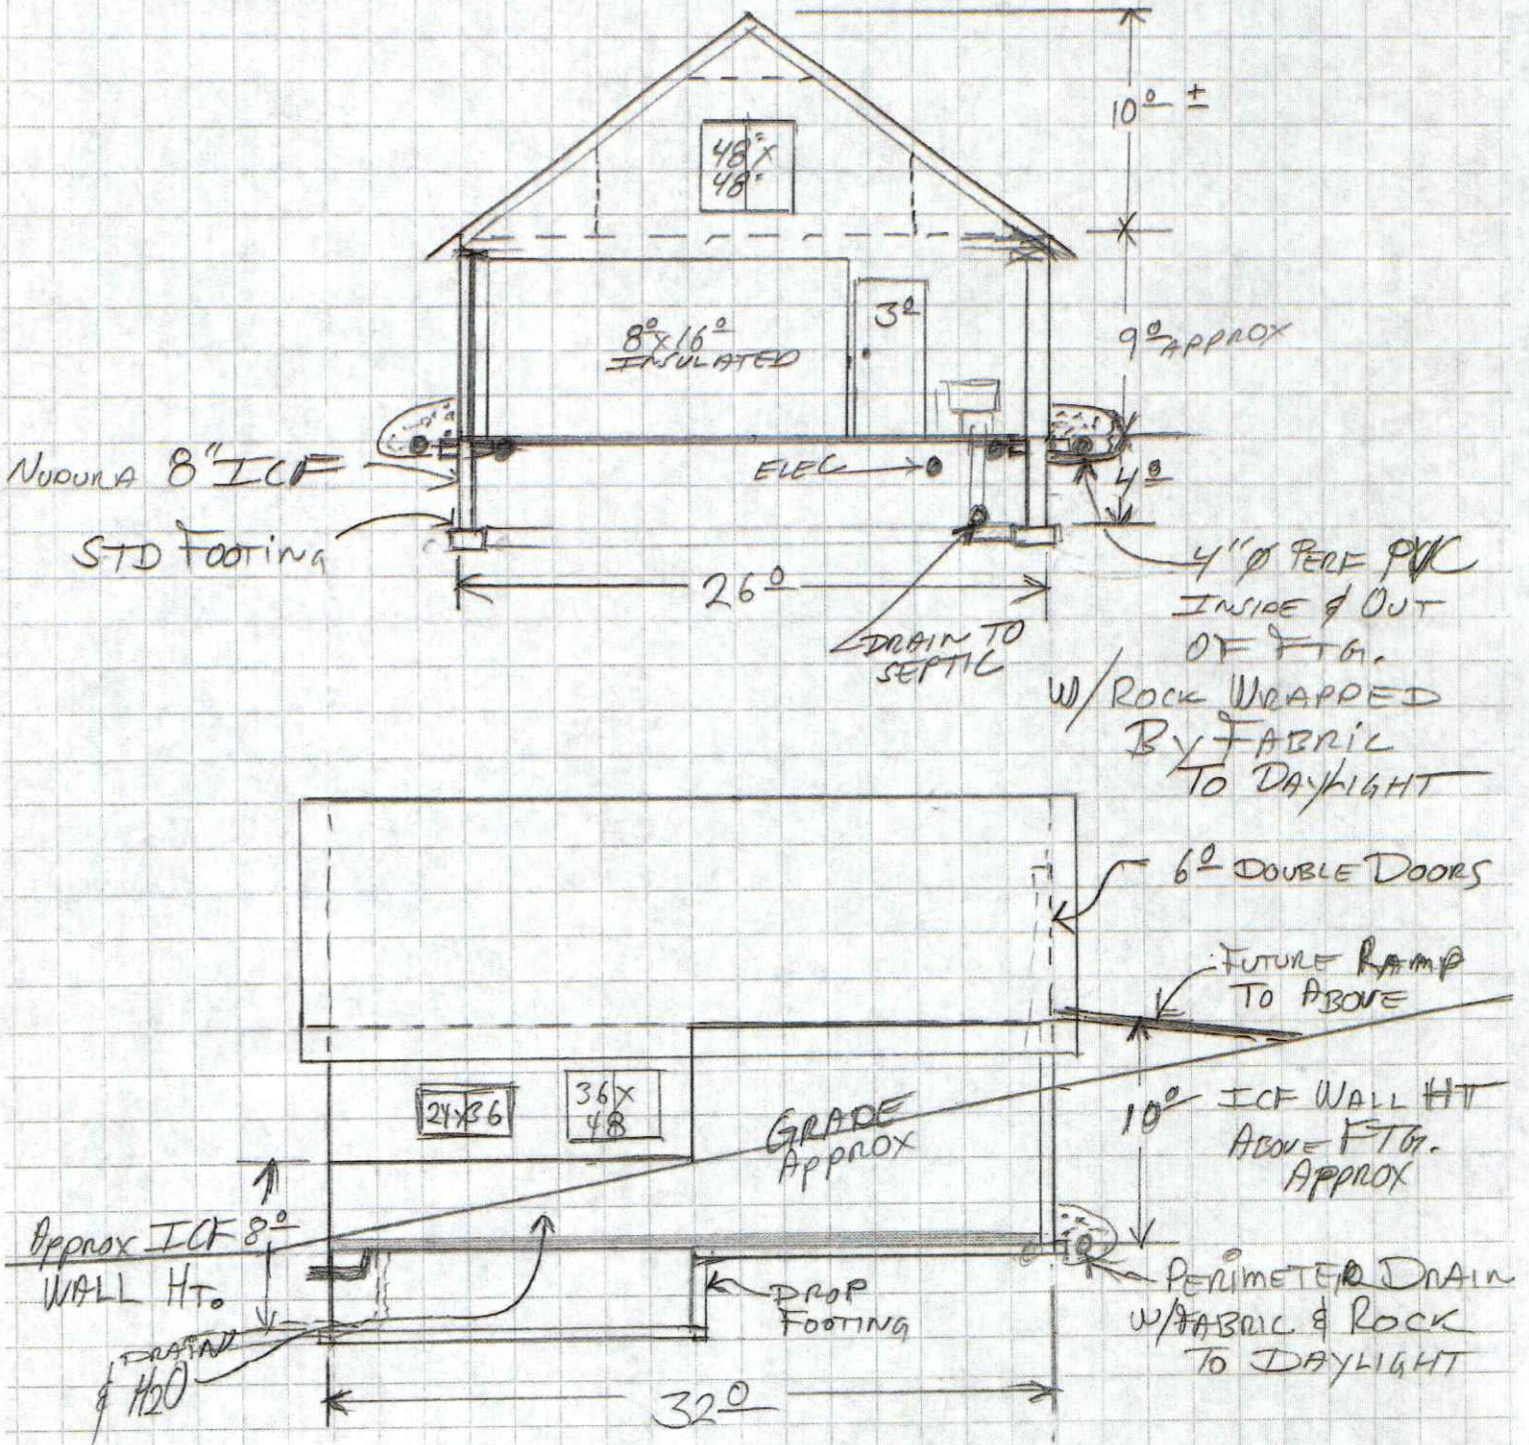 10º ±
48" X
48"
3º
8º X 16º
INSULATED
9º APPROX
NUDURA 8" ICF
ELEC
4º
STD FOOTING
26º
4" Ø PERF PVC
INSIDE & OUT
OF FTG.
W/ROCK WRAPPED
BY FABRIC
TO DAYLIGHT
DRAIN TO
SEPTIC
6º DOUBLE DOORS
FUTURE RAMP
TO ABOVE
24X36
36X
48
GRADE
APPROX
10º ICF WALL HT
ABOVE FTG.
APPROX
APPROX ICF 8º
WALL HT.
DROP
FOOTING
PERIMETER DRAIN
W/FABRIC & ROCK
TO DAYLIGHT
DRAIN
& H2O
32º